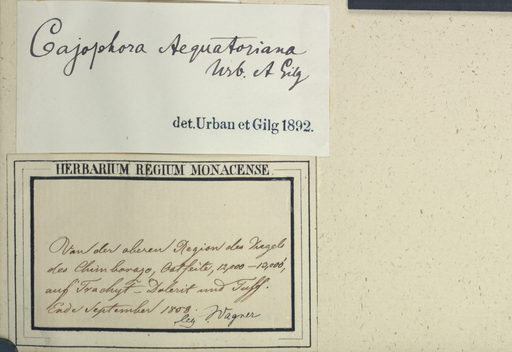 Cajophora Aequatoriana
Urb. et Gilg
det. Urban et Gilg 1892.
HERBARIUM REGIUM MONACENSE
Von der oberen Region des Kegels
des Chimborazo, Ostseite, 12,000 – 13,000',
auf Trachyt – Dolerit und Tuff.
Ende September 1858.
leg. Wagner